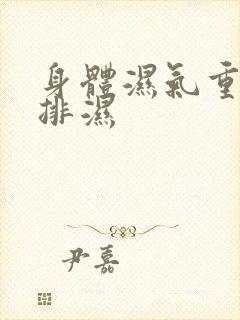 身體濕氣重
排濕
尹嘉